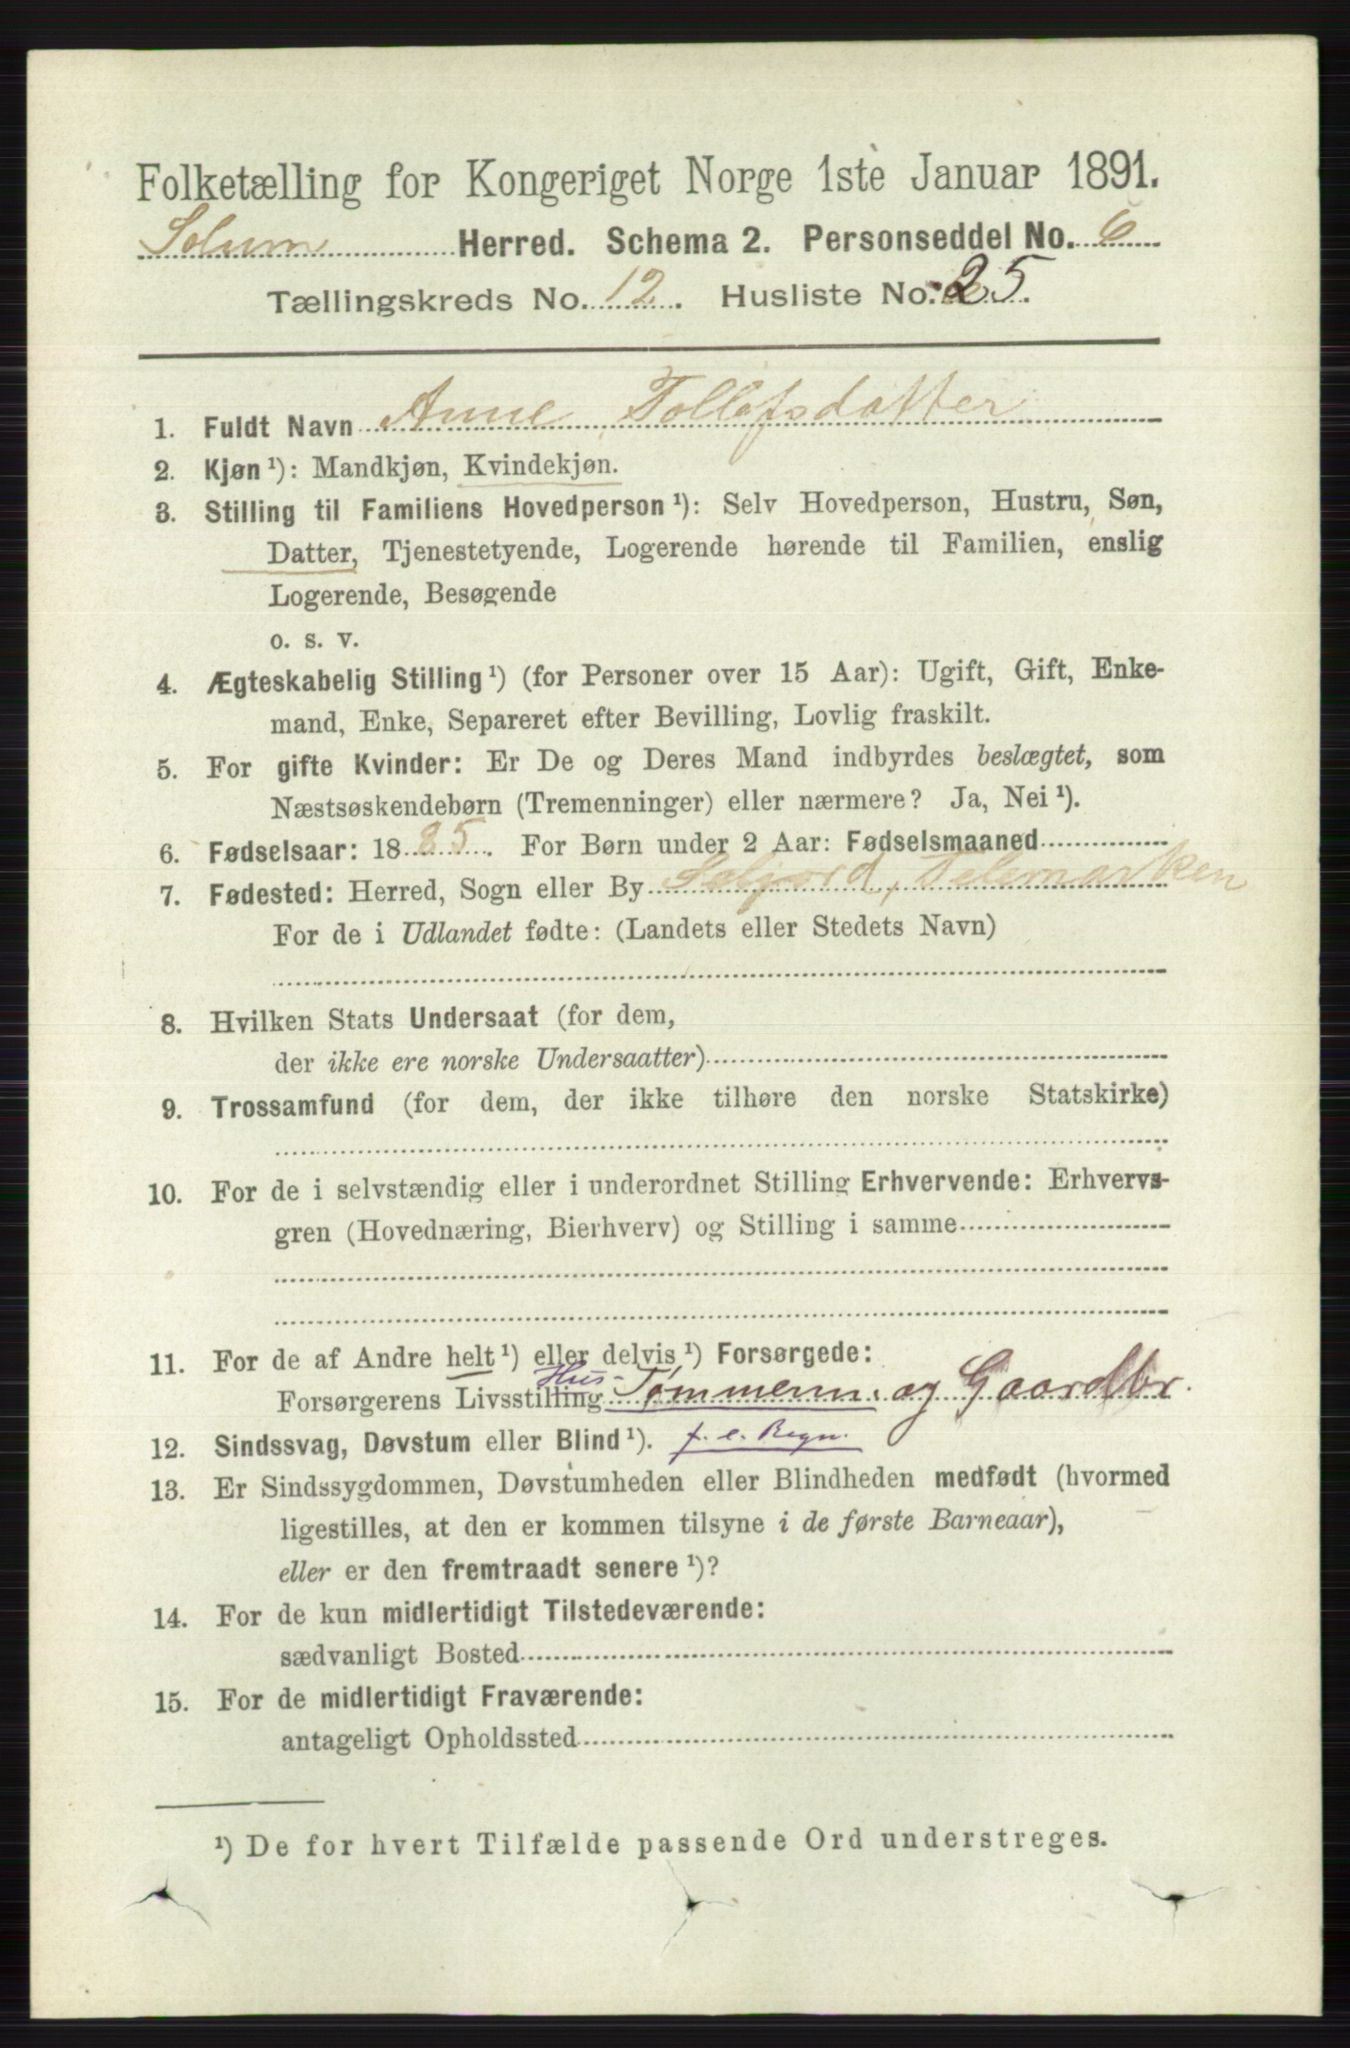 Folketælling for Kongeriget Norge 1ste Januar 1891.
Solum Herred. Schema 2. Personseddel No. 6
Tællingskreds No. 12. Husliste No. 25.
1. Fuldt Navn Anne Tollefsdatter
2. Kjøn ¹): Mandkjøn, Kvindekjøn.
3. Stilling til Familiens Hovedperson ¹): Selv Hovedperson, Hustru, Søn,
Datter, Tjenestetyende, Logerende hørende til Familien, enslig
Logerende, Besøgende
o. s. v.
4. Ægteskabelig Stilling ¹) (for Personer over 15 Aar): Ugift, Gift, Enke-
mand, Enke, Separeret efter Bevilling, Lovlig fraskilt.
5. For gifte Kvinder: Er De og Deres Mand indbyrdes beslægtet, som
Næstsøskendebørn (Tremenninger) eller nærmere? Ja, Nei ¹).
6. Fødselsaar: 1885. For Børn under 2 Aar: Fødselsmaaned
7. Fødested: Herred, Sogn eller By Seljord, Telemarken
For de i Udlandet fødte: (Landets eller Stedets Navn)
8. Hvilken Stats Undersaat (for dem,
der ikke ere norske Undersaatter)
9. Trossamfund (for dem, der ikke tilhøre den norske Statskirke)
10. For de i selvstændig eller i underordnet Stilling Erhvervende: Erhvervs-
gren (Hovednæring, Bierhverv) og Stilling i samme
11. For de af Andre helt ¹) eller delvis ¹) Forsørgede:
Hus-
Forsørgerens Livsstilling Tømmerm. og Gaardbr.
12. Sindssvag, Døvstum eller Blind ¹). f. e. Regn.
13. Er Sindssygdommen, Døvstumheden eller Blindheden medfødt (hvormed
ligestilles, at den er kommen tilsyne i de første Barneaar),
eller er den fremtraadt senere ¹)?
14. For de kun midlertidigt Tilstedeværende:
sædvanligt Bosted
15. For de midlertidigt Fraværende:
antageligt Opholdssted
¹) De for hvert Tilfælde passende Ord understreges.